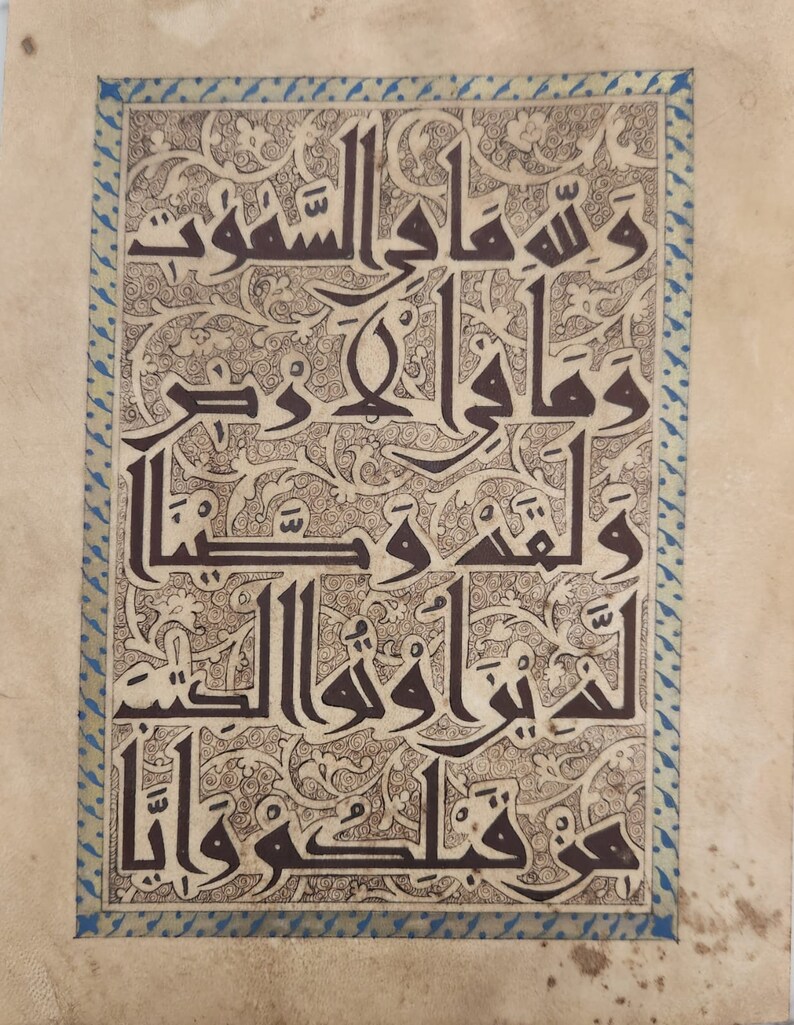 وَلِلّٰهِ مَا فِي السَّمٰوٰتِ
وَمَا فِي الْاَرْضِ
وَلَقَدْ وَصَّيْنَا
الَّذِيْنَ اُوْتُوا الْكِتٰبَ
مِنْ قَبْلِكُمْ وَاِيَّا